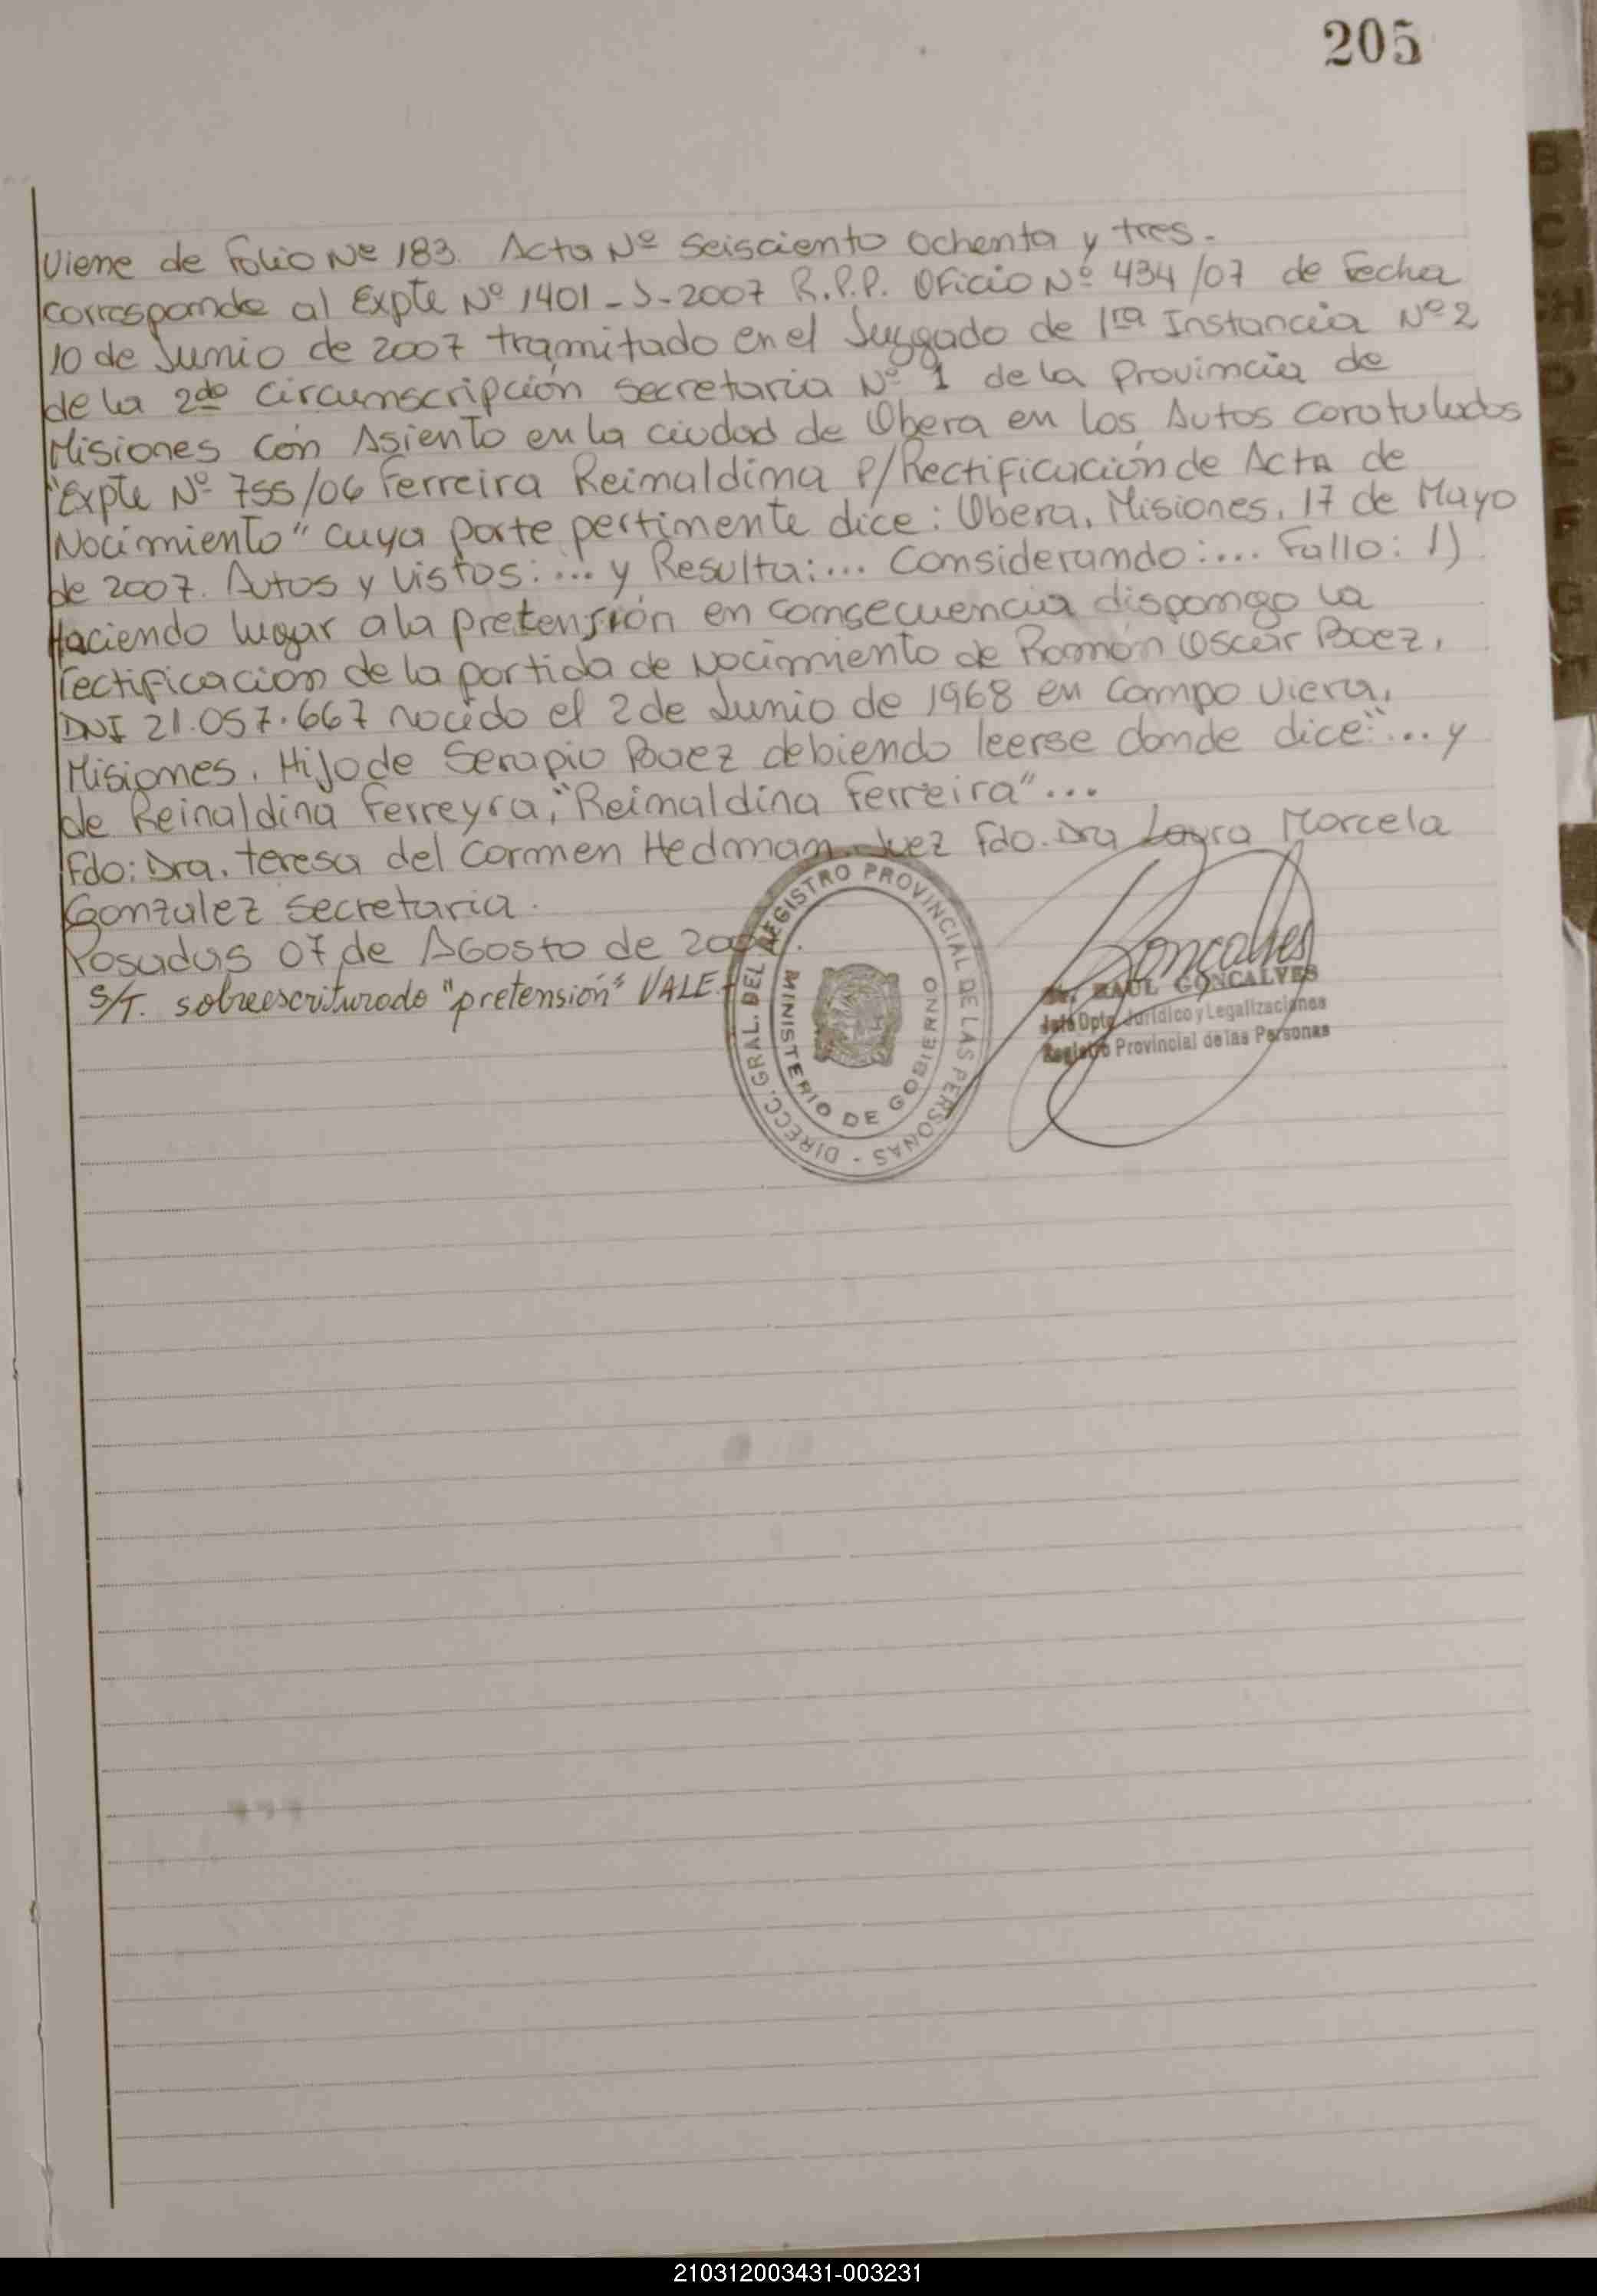 205
Viene de Folio Nº 183. Acta Nº Seisciento Ochenta y tres.
corresponde al Expte Nº 1401-J-2007 R.P.P. Oficio Nº 434/07 de Fecha
10 de Junio de 2007 tramitado en el Juzgado de 1ra Instancia Nº 2
de la 2da circunscripción secretaria Nº 1 de la Provincia de
Misiones con Asiento en la ciudad de Obera en los Autos caratulados
"Expte Nº 755/06 Ferreira Reinaldina P/Rectificación de Acta de
Nacimiento" cuya parte pertinente dice: Obera, Misiones, 17 de Mayo
de 2007. Autos y vistos:... y Resulta:... Considerando:... Fallo: 1)
Haciendo lugar a la pretensión en consecuencia dispongo la
rectificación de la partida de nacimiento de Ramón Oscar Baez,
DNI 21.057.667 nacido el 2 de Junio de 1968 en campo viera,
Misiones, Hijo de Serapio Baez debiendo leerse donde dice: "... y
de Reinaldina Ferreyra," "Reinaldina Ferreira"...
Fdo: Dra. Teresa del Carmen Hedman. Juez Fdo. Dra Laura Marcela
Gonzalez Secretaria.
Posadas 07 de Agosto de
S/T. sobreescriturado "pretensión" VALE.-
DIRECC. GRAL. DEL REGISTRO PROVINCIAL DE LAS PERSONAS -
MINISTERIO DE GOBIERNO
Goncalves
Dr. RAUL GONCALVES
Jefe Dpto. Jurídico y Legalizaciones
Registro Provincial de las Personas
B
C
CH
D
E
F
G
H
210312003431-003231